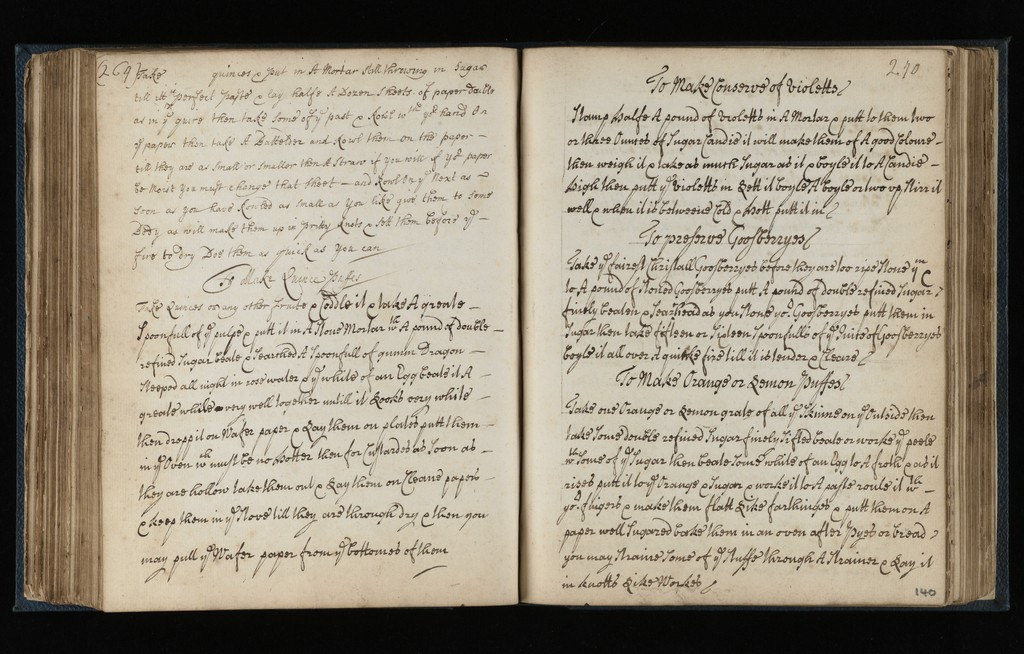 269
Take quinces & put in A Mortar still throwing in Sugar
till perfect paste & lay halfe A Dozen Sheets of paper Double
as in yᵉ quire then take Some of yᵉ past & Rowl wᵗʰ yʳ hand on
yᵉ paper then take A Battelder and Rowl them on the paper
till they are as Small or Smaller then A Straw if you will if yᵉ paper
be Moist you must change that Sheet and Rowl on yᵉ Next as
Soon as you have Rowled as Small as you like give them to Some
Body as will make them up in pretty knots & Sett them before yᵉ
fire to dry Doe them as quick as you can
To Make Quince Pufes
Take Quinces or any other fruite & Coddle it & take A greate
Spoonfull of yᵉ pulpe & putt it in A Stone Mortar wᵗʰ A pound of double
refined Sugar beate & Searched A Spoonfull of gumm Dragon
Steeped all night in rose water & yᵉ white of an Egg beate it A
greate while very well together untill it Looks very white
then dropp it on Wafer paper & Lay them on plates putt them
in yᵉ Oven wᶜʰ must be no hotter then for Custardes as Soon as
they are hollow take them out & Lay them on Cleane papers
& keep them in yᵉ Stove till they are through dry & then you
may pull yᵉ Wafer paper from yᵉ bottomes of them
270
To Make Conserve of violetts
Stamp halfe A pound of violetts in A Mortar & putt to them two
or three Ounces of Sugar Candie it will make them of A good Coloure
then weigh it & take as much Sugar as it & boyle it to A Candie
high then putt yᵉ violetts in Lett it boyle A boyle or two up Stirr it
well & when it is betweene Cold & hott putt it in
To preserve Goosberryes
Take yᵉ fairest Christall Goosberryes before they are too ripe Stone yᵐ
to A pound of Stoned Goosberryes putt A pound of double refined Sugar
finely beaten & Searched as you Stone yᵉ Goosberryes putt them in
Sugar then take fifteen or Sixteen Spoonfulls of yᵉ Juice of Goosberryes
boyle it all over A quicke fire till it is tender & Cleare
To Make Orange or Lemon Puffes
Take one Orange or Lemon grate of all yᵉ Skinne on yᵉ Outside then
take Some double refined Sugar finely Sifted beate or worke yᵉ peele
wᵗʰ Some of yᵉ Sugar then beate Some white of an Egg to A froth & as it
rises putt it to yᵉ Orange & Sugar & worke it to A paste roule it wᵗʰ
yoʳ fingers & make them flatt Like farthinges & putt them on A
paper well Sugared bake them in an oven after Pyes or bread
you may Straine Some of yᵉ Stuffe through A Strainer & Lay it
in knotts Like Workes
140